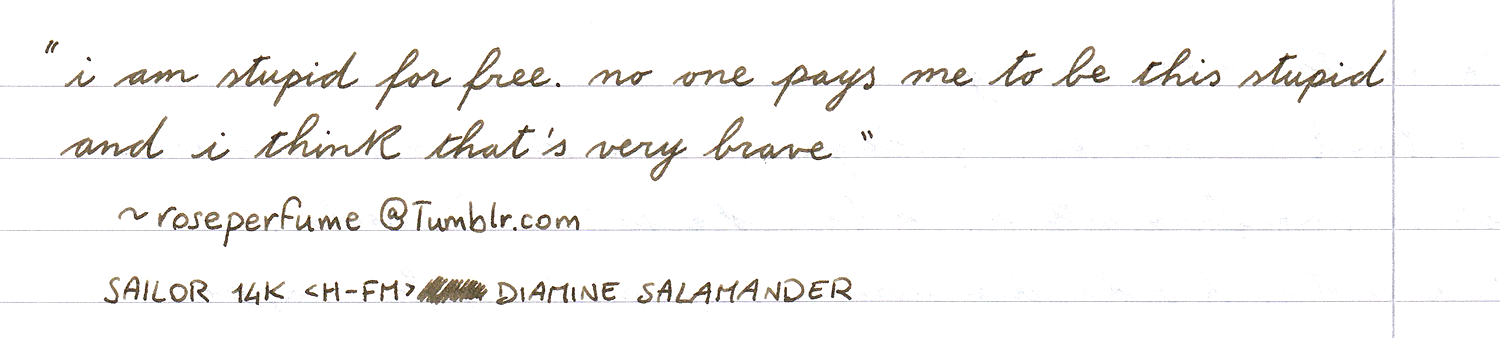 "i am stupid for free. no one pays me to be this stupid
and i think that's very brave"
~roseperfume @Tumblr.com
SAILOR 14K <H-FM> DIAMINE SALAMANDER